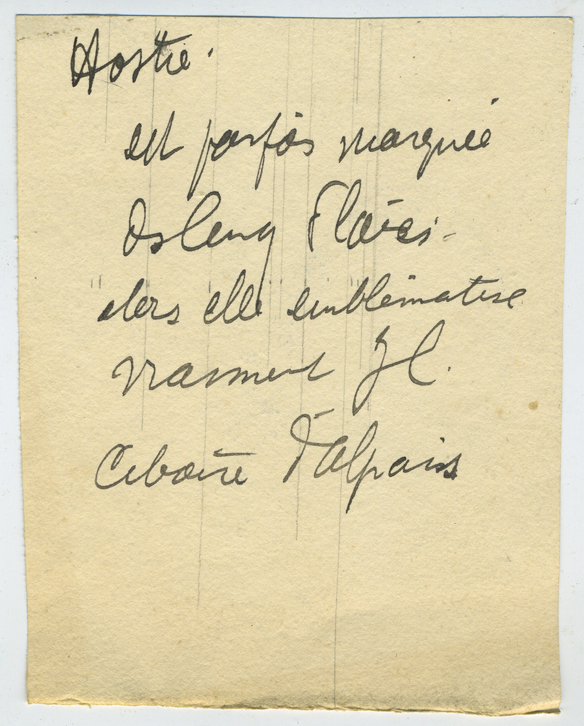 Hostie.
est parfois marquée
des cinq Plaies -
alors elle emblematise
vraiment J C.
Ciboire d'Alpais